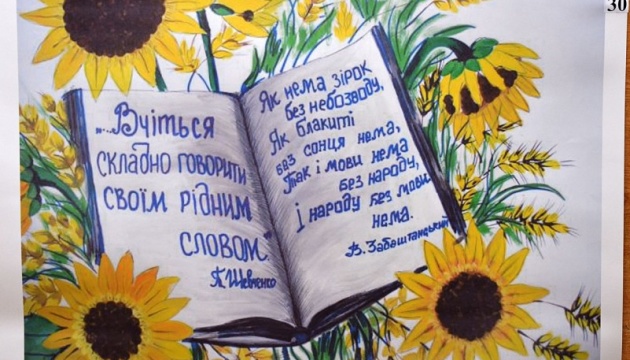 30
„...Вчіться
складно говорити
своїм рідним
словом."
Т. Шевченко
Як нема зірок
без небозводу,
Як блакиті
без сонця нема,
Так і мови нема
без народу,
І народу без мови
нема.
В. Забаштанський